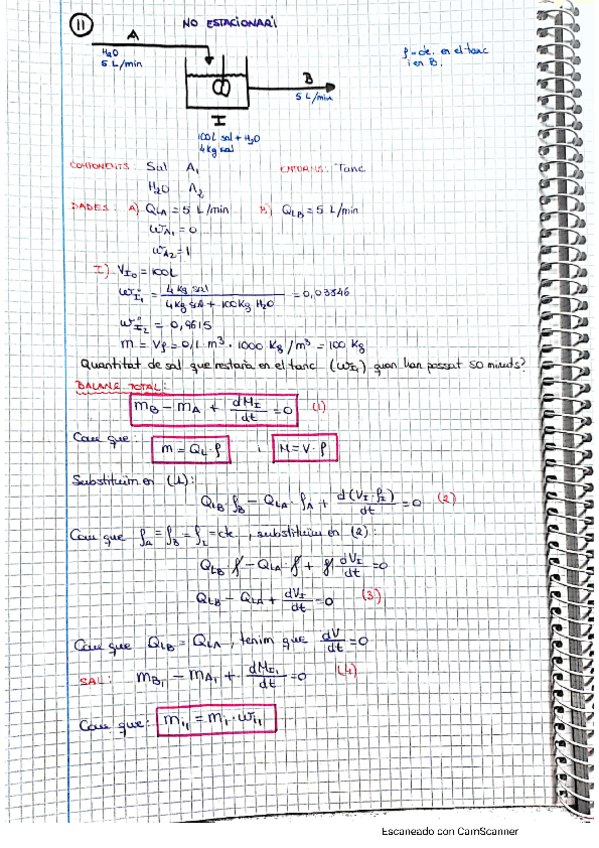 11 NO ESTACIONARI
A
H₂O
5 L/min
ρ = cte. en el tanc
i en B.
B
5 L/min
I
100L sal + H₂O
4 Kg sal
COMPONENTS: Sal A₁ ENTORNS: Tanc
H₂O A₂
DADES: A) Q_LA = 5 L/min B) Q_LB = 5 L/min
w_A1 = 0
w_A2 = 1
I) V_I0 = 100L
w°_I1 = 4 Kg sal / 4 Kg sal + 100 Kg H₂O = 0,03846
w°_I2 = 0,9615
m = Vρ = 0,1 m³ · 1000 Kg/m³ = 100 Kg
Quantitat de sal que restaria en el tanc (w_I1) quan han passat 50 minuts?
BALANÇ TOTAL:
m_B - m_A + dM_I/dt = 0 (1)
Com que: m = Q_L · ρ i M = V · ρ
Substituïm en (1):
Q_LB ρ_B - Q_LA · ρ_A + d(V_I · ρ_I)/dt = 0 (2)
Com que ρ_A = ρ_B = ρ_I = cte., substituïm en (2):
Q_LB · ρ - Q_LA · ρ + ρ dV_I/dt = 0
Q_LB - Q_LA + dV_I/dt = 0 (3)
Com que Q_LB = Q_LA, tenim que dV/dt = 0
SAL: m_B1 - m_A1 + dM_I1/dt = 0 (4)
Com que: m_i1 = m_i · w_i1
Escaneado con CamScanner